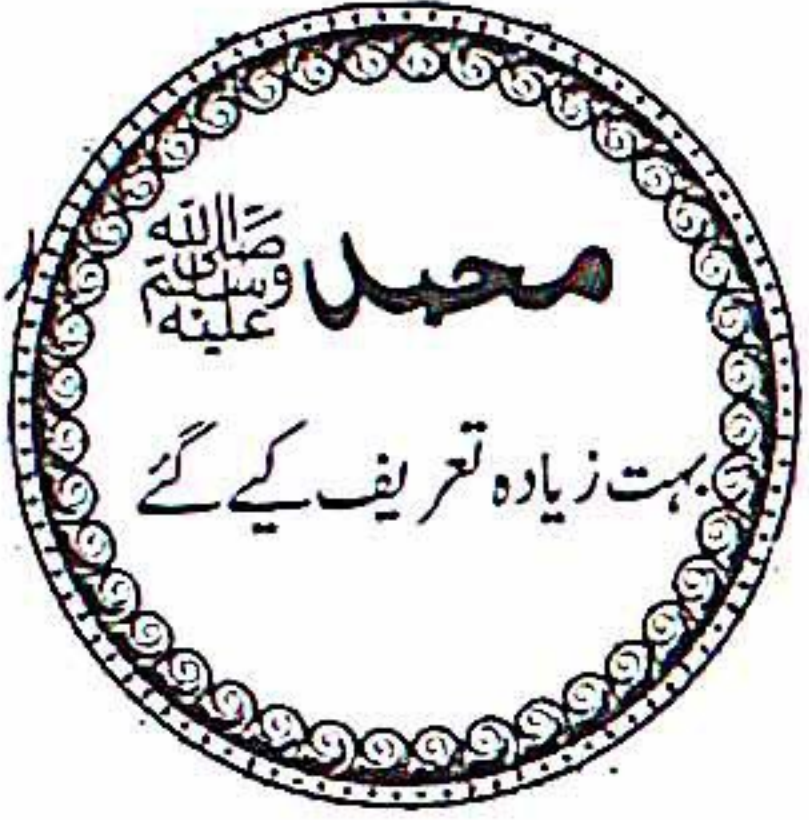 محمد صلى الله عليه وسلم
بہت زیادہ تعریف کیے گئے